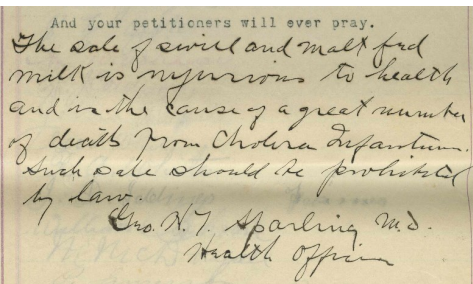 And your petitioners will ever pray.
The sale of swill and malt fed
milk is injurious to health
and is the cause of a great number
of death from Cholera Infantum.
Such sale should be prohibited
by law.
Geo. H. T. Sparling M.D.
Health Officer